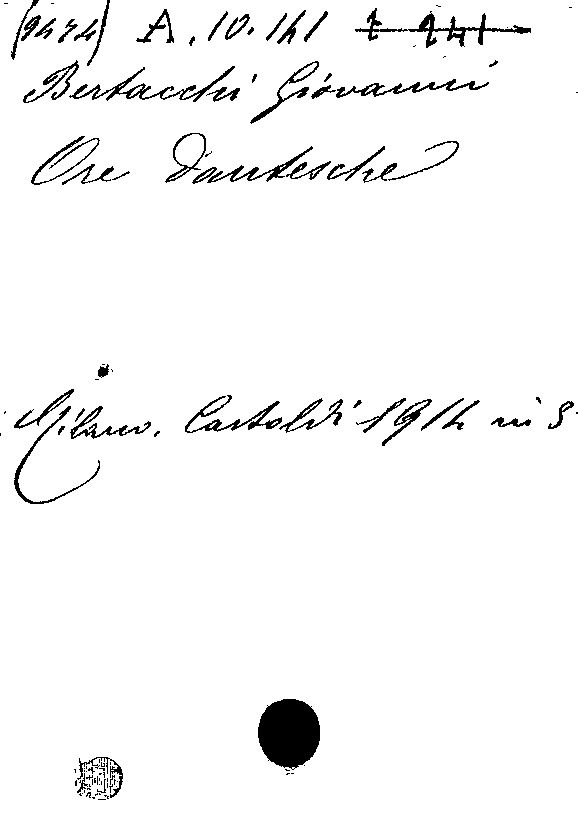 (9474) A. 10. 141 t 941
Bertacchi Giovanni
Ore Dantesche
Milano. Castoldi 1914 in 8